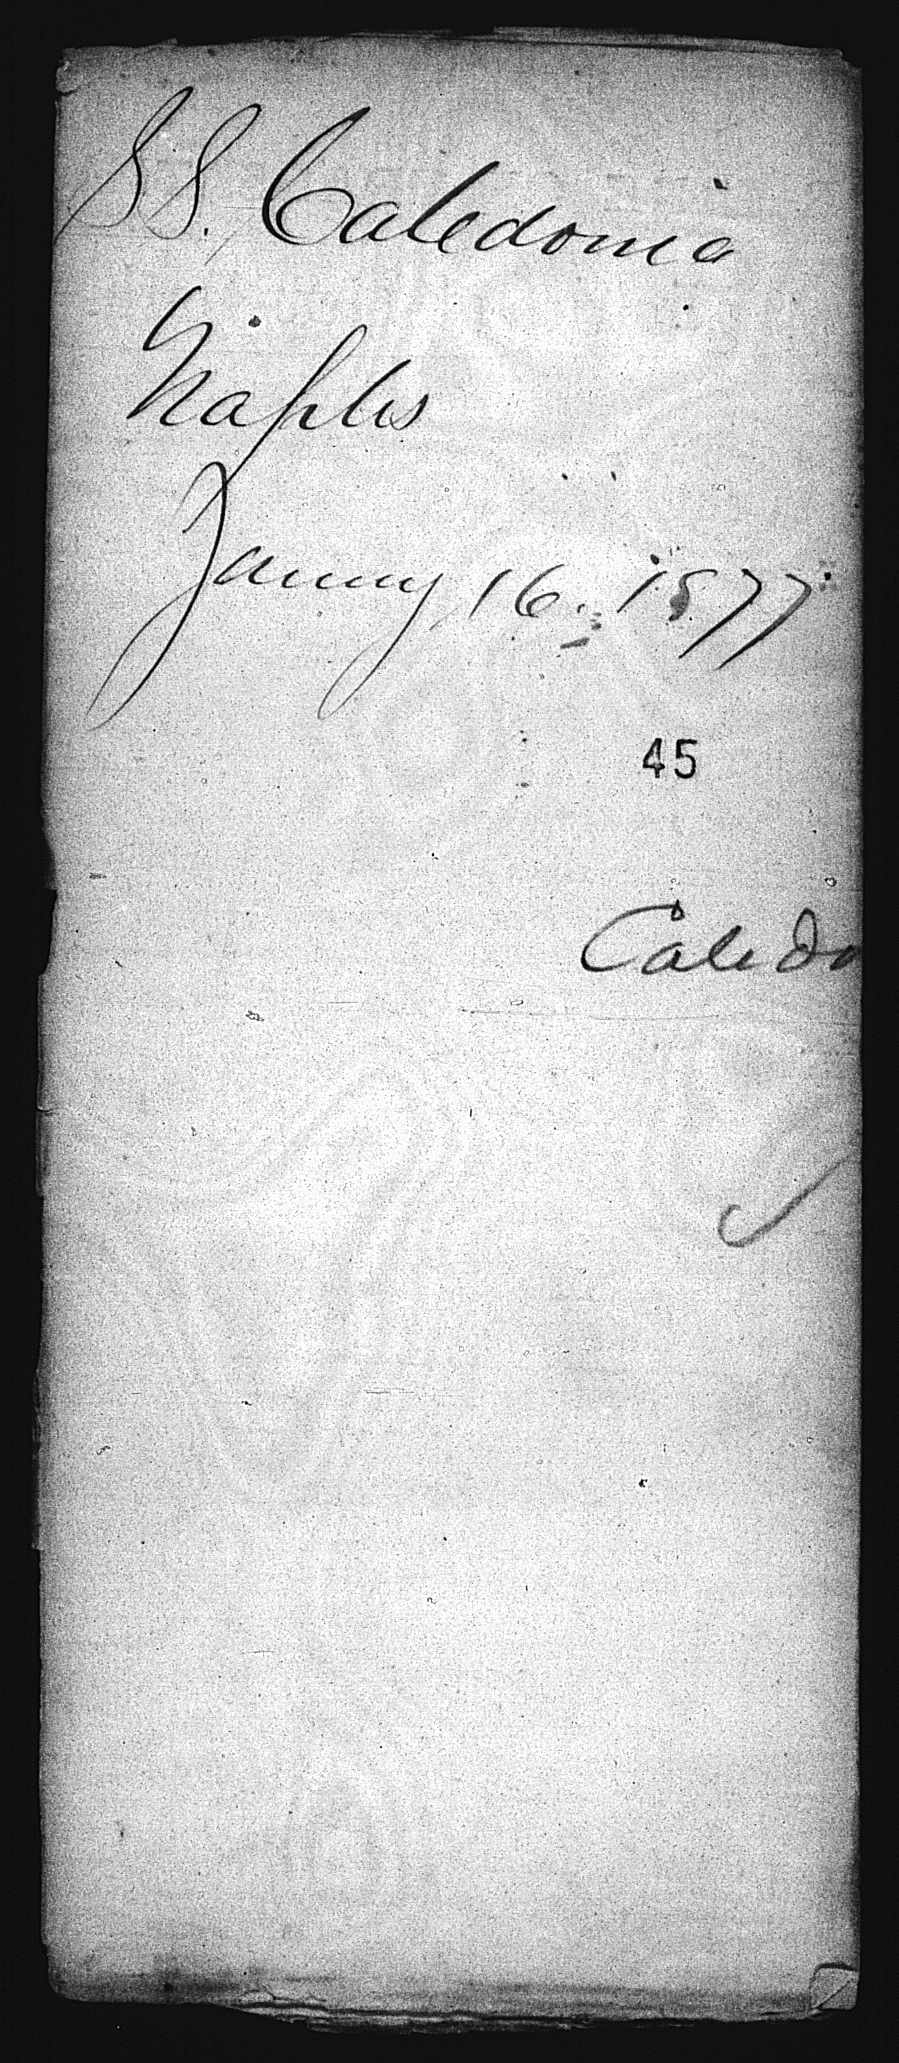 SS. Caledonia
Naples
January 16. 1877
45
Caledo